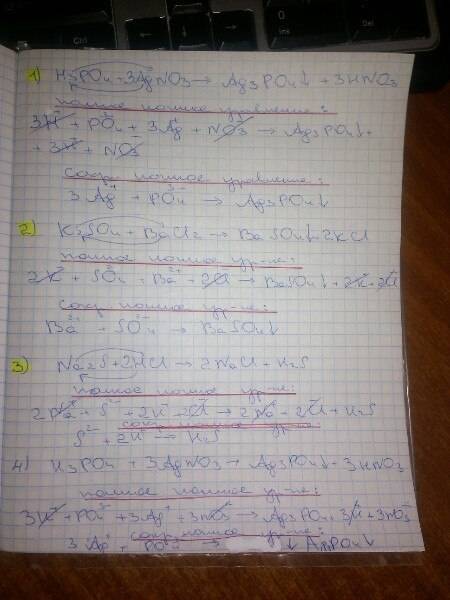 1) H3PO4 + 3AgNO3 → Ag3PO4↓ + 3HNO3
полное ионное уравнение:
3H⁺ + PO4³⁻ + 3Ag⁺ + NO3⁻ → Ag3PO4↓ +
+ 3H⁺ + NO3⁻
сокр. ионное уравнение:
3Ag⁺ + PO4³⁻ → Ag3PO4↓
2) K2SO4 + BaCl2 → BaSO4↓ 2KCl
полное ионное ур-ние:
2K⁺ + SO4²⁻ + Ba²⁺ + 2Cl⁻ → BaSO4↓ + 2K⁺ + 2Cl⁻
сокр. ионное ур-ние:
Ba²⁺ + SO4²⁻ → BaSO4↓
3) Na2S + 2HCl → 2NaCl + H2S
полное ионное ур-ние:
2Na⁺ + S²⁻ + 2H⁺ + 2Cl⁻ → 2Na⁺ + 2Cl⁻ + H2S
сокр ионное ур-ние
S²⁻ + 2H⁺ → H2S
4) H3PO4 + 3AgNO3 → Ag3PO4↓ + 3HNO3
полное ионное ур-ние:
3H⁺ + PO4³⁻ + 3Ag⁺ + 3NO3⁻ → Ag3PO4 + 3H⁺ + 3NO3⁻
сокр. ионное ур-ние:
3Ag⁺ + PO4³⁻ → ↓ PO4↓